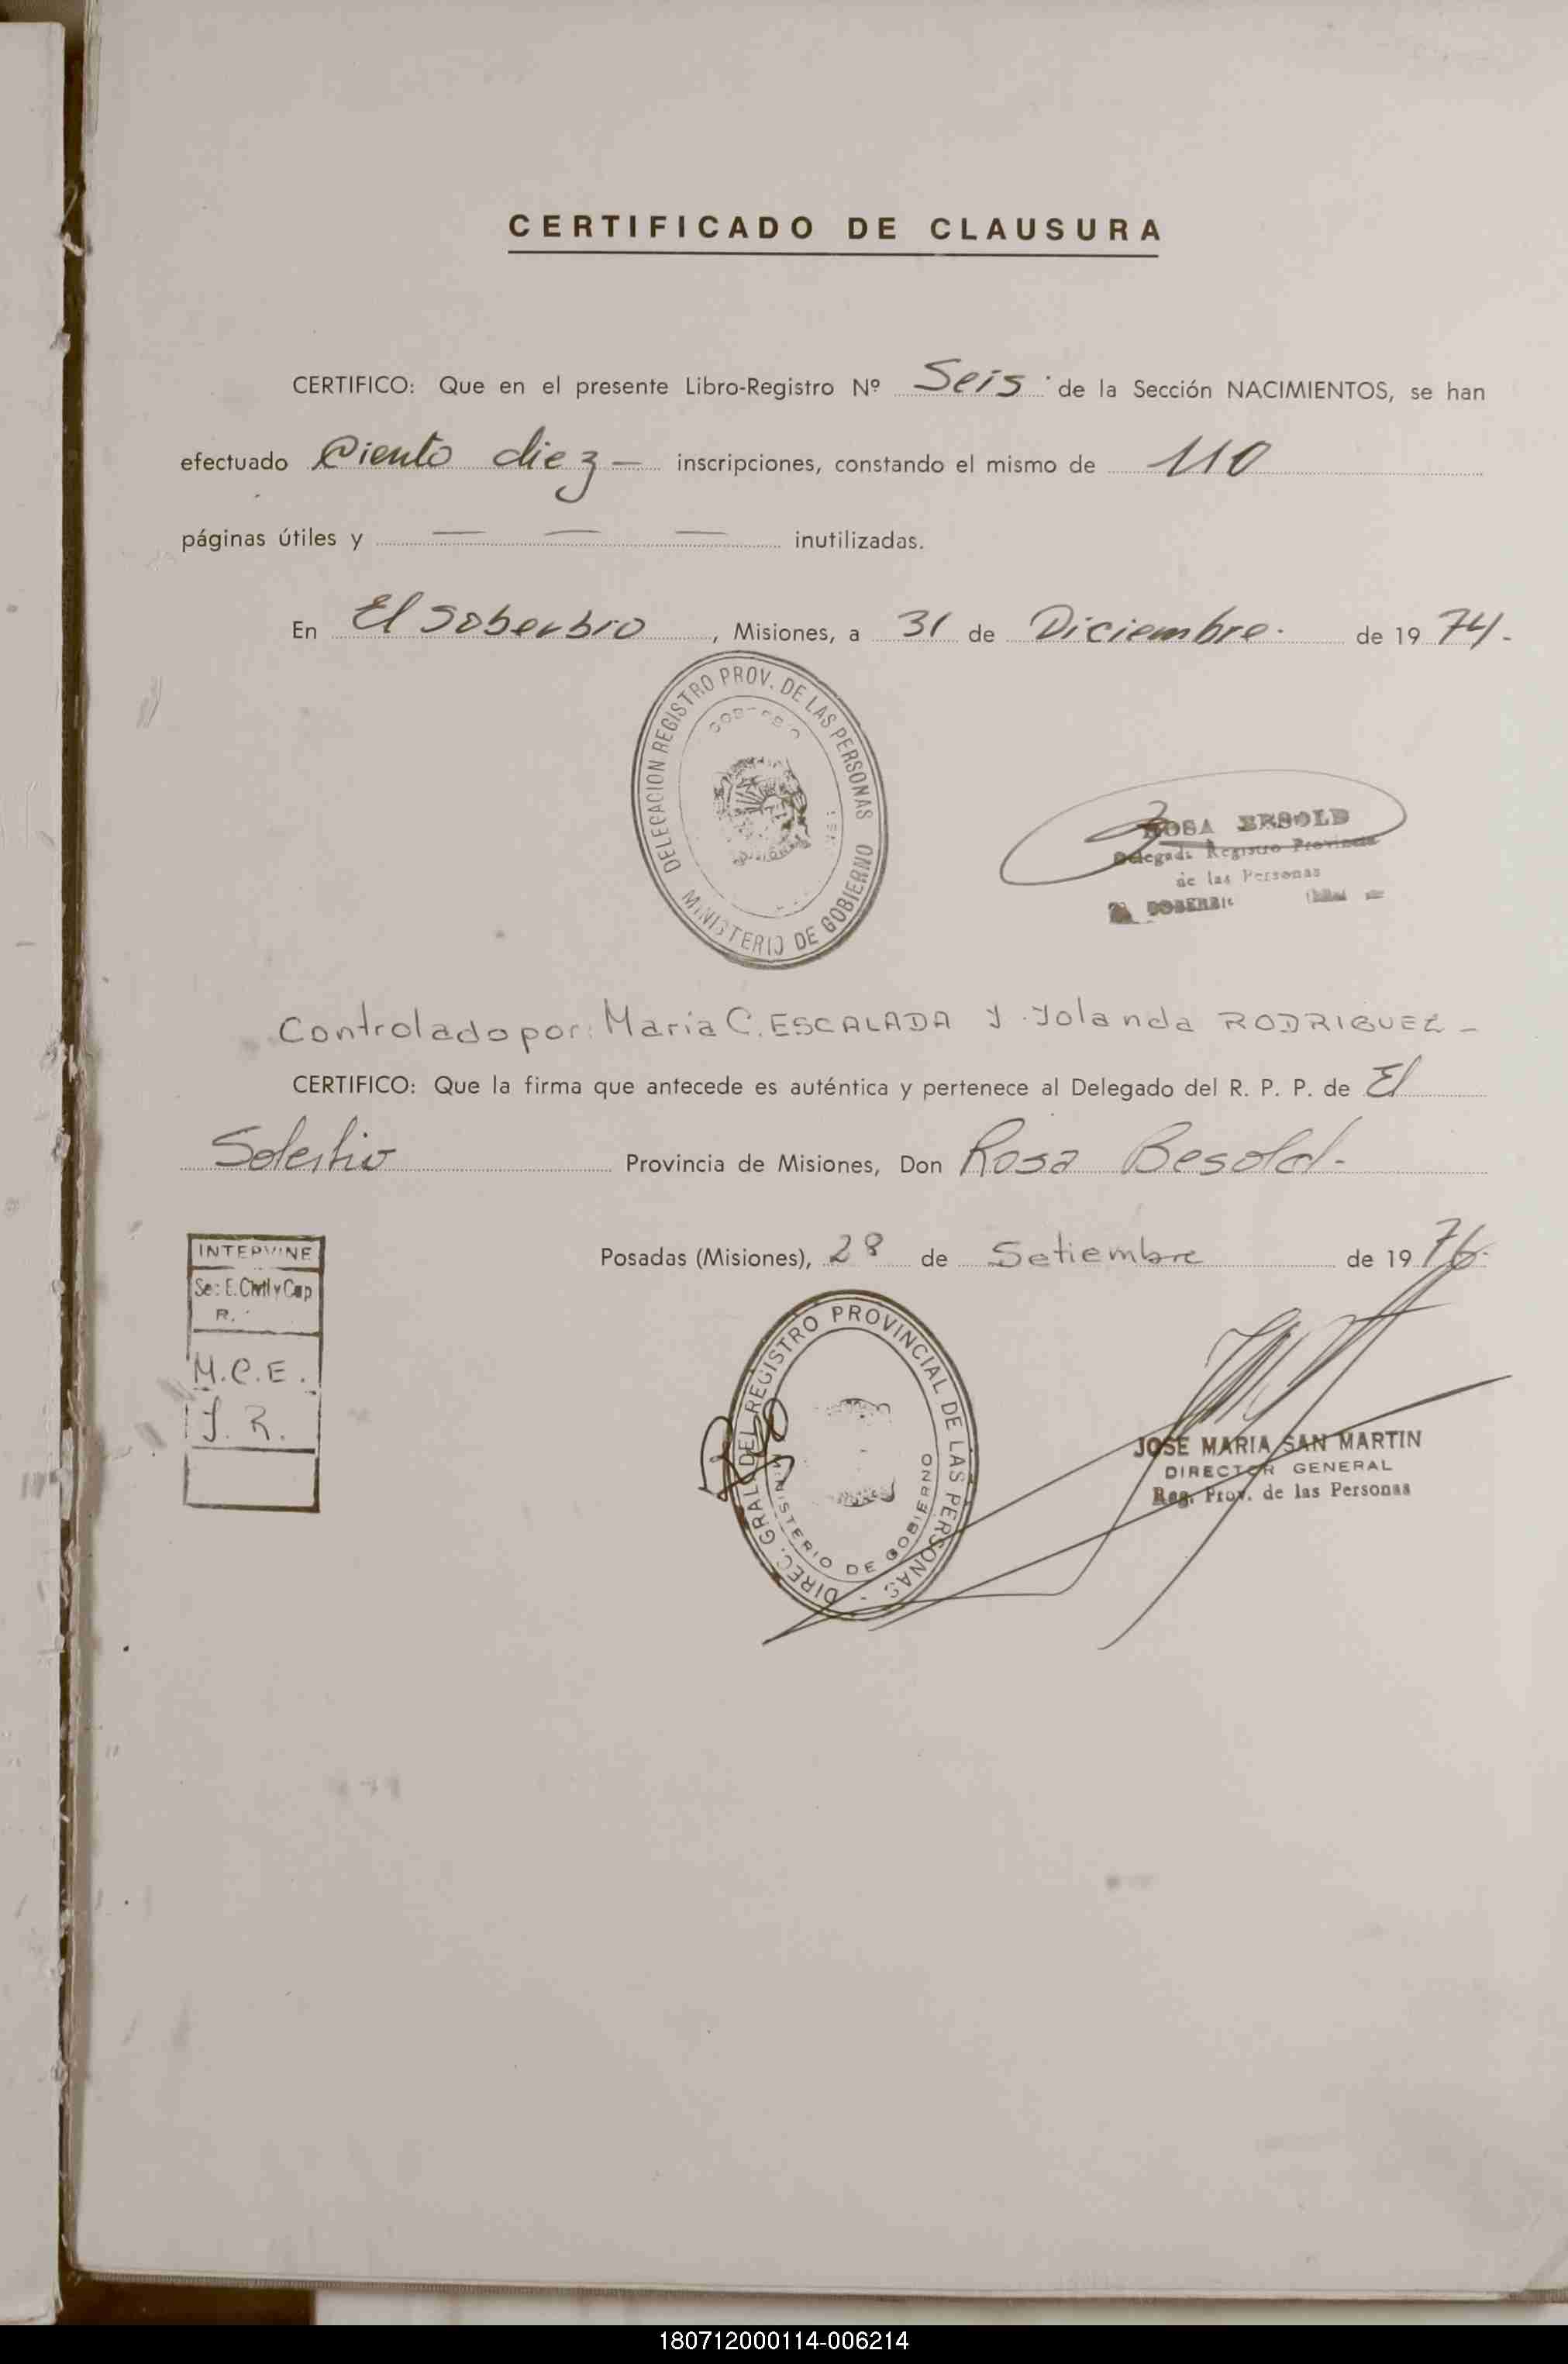 CERTIFICADO DE CLAUSURA
CERTIFICO: Que en el presente Libro-Registro Nº Seis de la Sección NACIMIENTOS, se han
efectuado Ciento diez — inscripciones, constando el mismo de 110
páginas útiles y — — — inutilizadas.
En El Soberbio, Misiones, a 31 de Diciembre. de 19 74.
DELEGACION REGISTRO PROV. DE LAS PERSONAS
MINISTERIO DE GOBIERNO
ROSA BESOLD
Delegada Registro Provincia
de las Personas
SOBERBIO
Controlado por: María C. ESCALADA Y Yolanda RODRIGUEZ -
CERTIFICO: Que la firma que antecede es auténtica y pertenece al Delegado del R. P. P. de El
Soberbio Provincia de Misiones, Don Rosa Besold.-
Posadas (Misiones), 28 de Setiembre de 19 76.
INTERVINE
Sec: E. Civil y Cap
R.
M.C.E.
Y. R.
DIREC. GRAL. DEL REGISTRO PROVINCIAL DE LAS PERSONAS -
MINISTERIO DE GOBIERNO
JOSE MARIA SAN MARTIN
DIRECTOR GENERAL
Reg. Prov. de las Personas
180712000114-006214